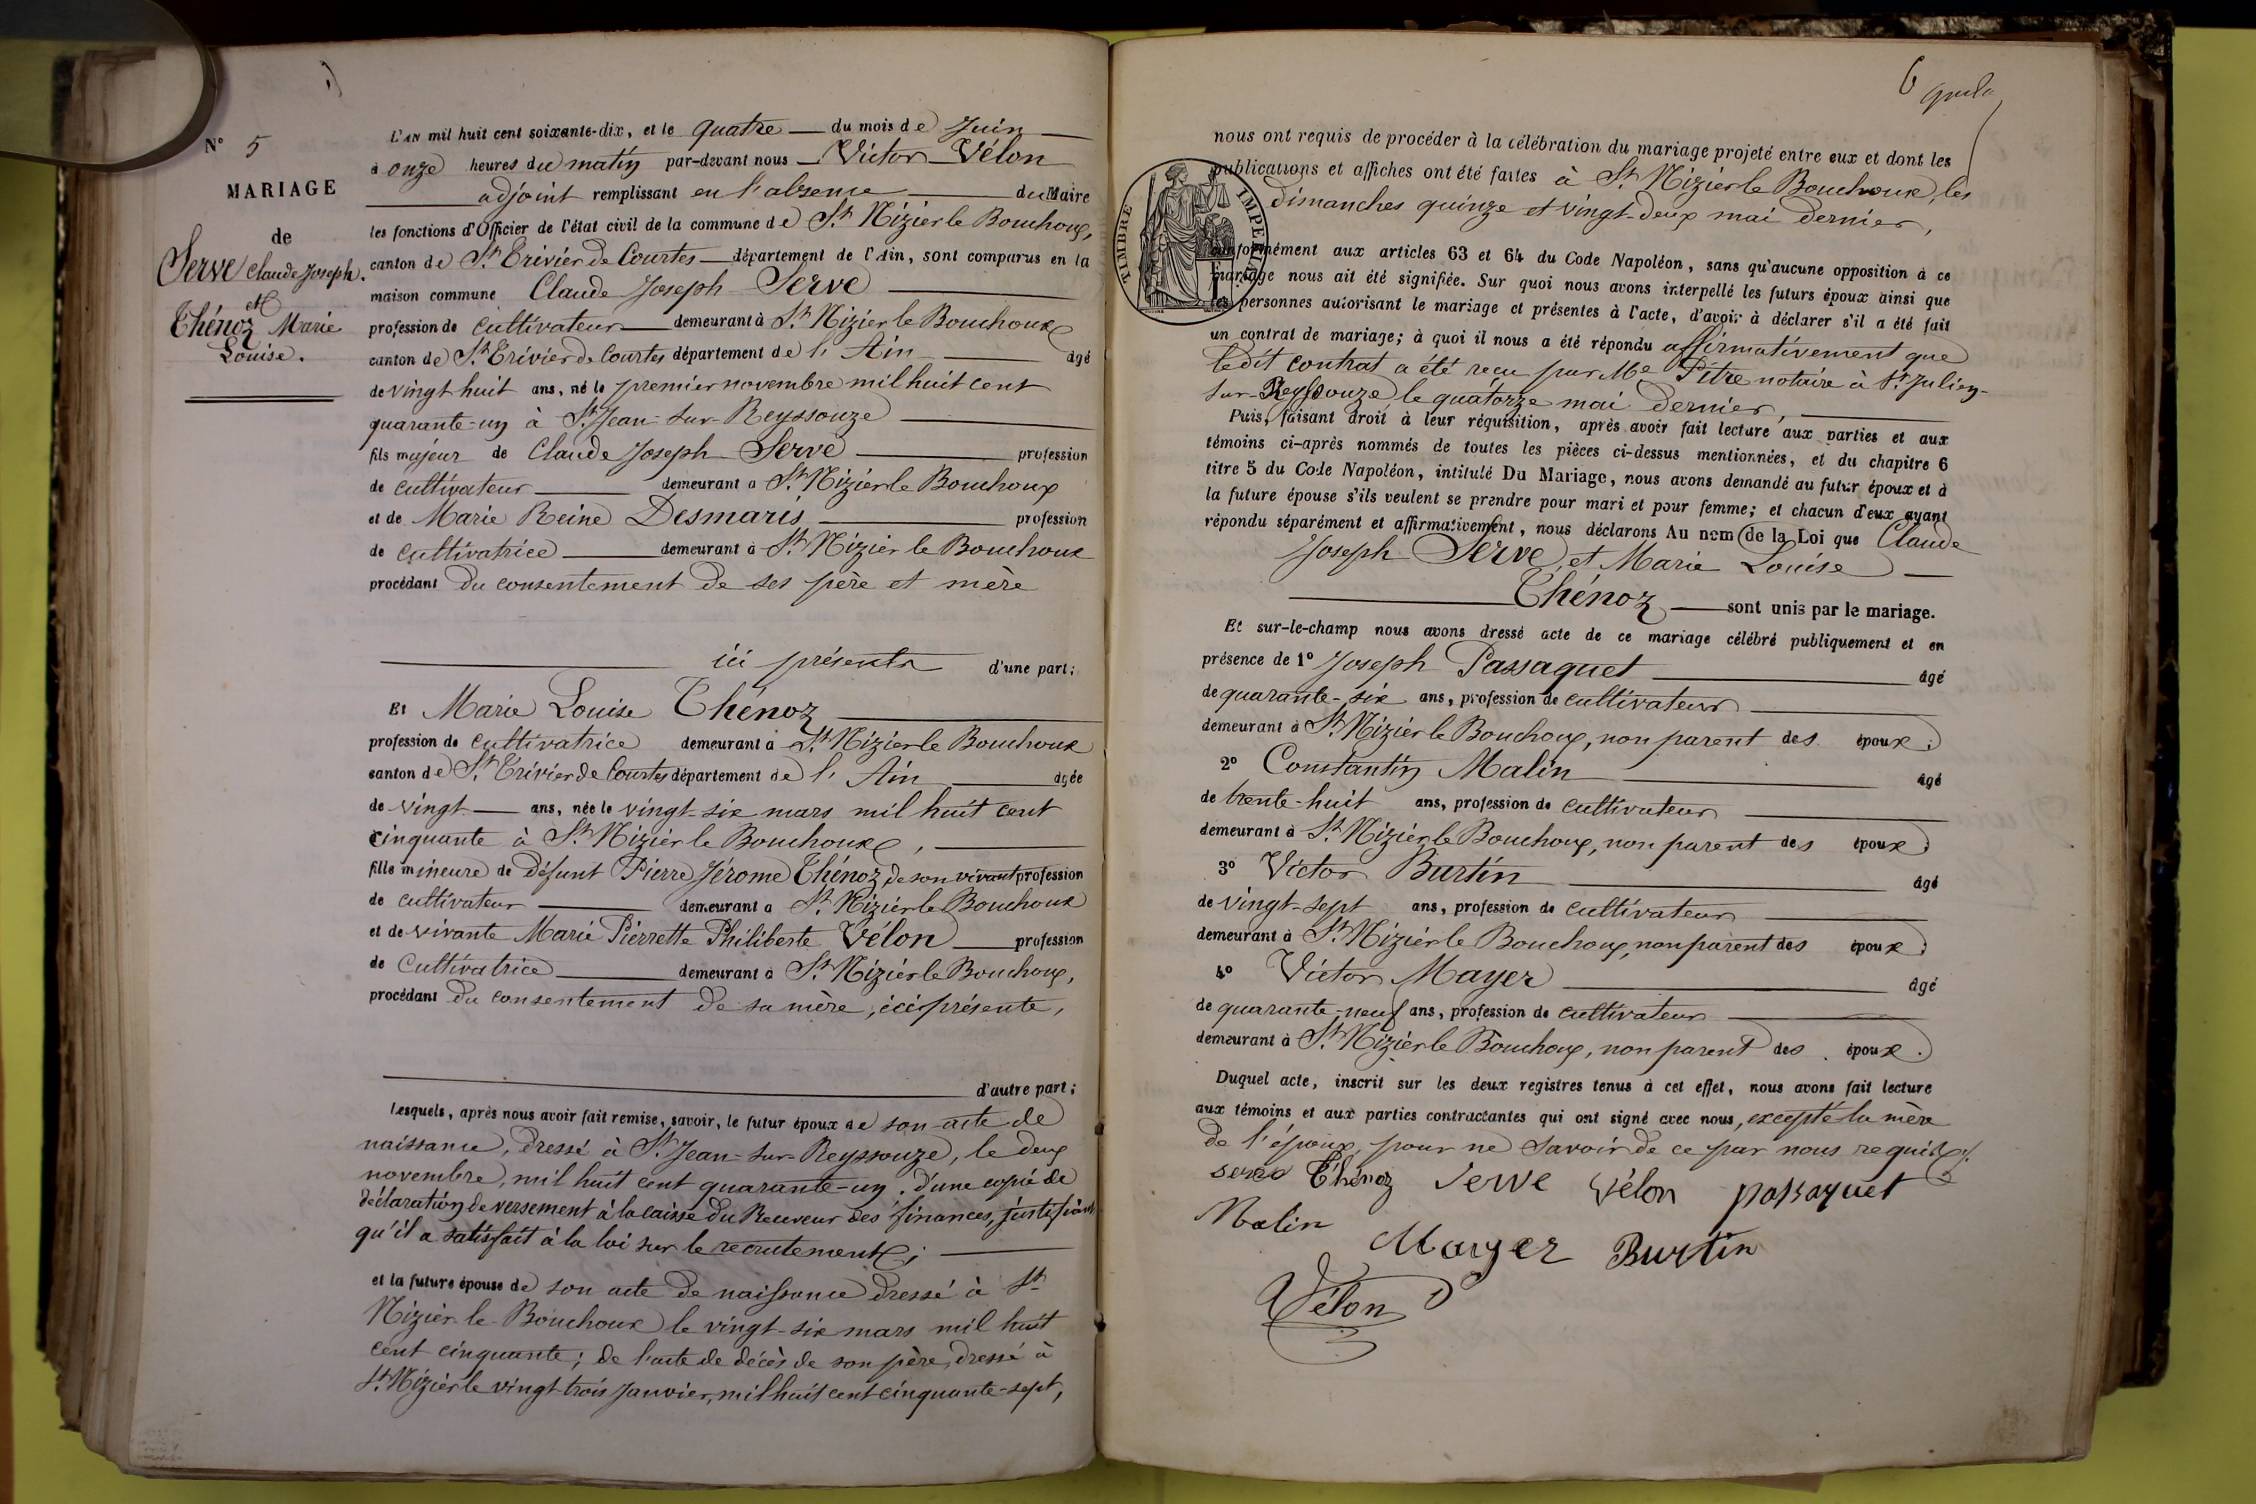 N° 5
MARIAGE
de
Serve Claude Joseph.
et
Thénoz Marie
Louise.
L'AN mil huit cent soixante-dix, et le quatre du mois de Juin
à onze heures du matin par-devant nous Victor Vélon
adjoint remplissant en l'absence du Maire
les fonctions d'Officier de l'état civil de la commune de St Nizier le Bouchoux,
canton de St Trivier de Courtes département de l'Ain, sont comparus en la
maison commune Claude Joseph Serve
profession de cultivateur demeurant à St Nizier le Bouchoux
canton de St Trivier de Courtes département de l'Ain âgé
de vingt huit ans, né le premier novembre mil huit cent
quarante-un à St Jean-sur-Reyssouze
fils majeur de Claude Joseph Serve profession
de cultivateur demeurant à St Nizier le Bouchoux
et de Marie Reine Desmaris profession
de cultivatrice demeurant à St Nizier le Bouchoux
procédant du consentement de ses père et mère
ici présents d'une part;
Et Marie Louise Thénoz
profession de cultivatrice demeurant à St Nizier le Bouchoux
canton de St Trivier de Courtes département de l'Ain âgée
de vingt ans, née le vingt-six mars mil huit cent
cinquante à St Nizier le Bouchoux,
fille mineure de défunt Pierre Jérome Thénoz de son vivant profession
de cultivateur demeurant à St Nizier le Bouchoux
et de vivante Marie Pierrette Philiberte Vélon profession
de cultivatrice demeurant à St Nizier le Bouchoux,
procédant du consentement de sa mère, ici présente,
d'autre part;
Lesquels, après nous avoir fait remise, savoir, le futur époux de son acte de
naissance, dressé à St Jean-sur-Reyssouze, le deux
novembre, mil huit cent quarante-un. d'une copie de
déclaration de versement à la caisse du Receveur des finances, justifiant
qu'il a satisfait à la loi sur le recrutement;
et la future épouse de son acte de naissance dressé à St
Nizier le Bouchoux le vingt-six mars mil huit
cent cinquante; de l'acte de décès de son père, dressé à
St Nizier le vingt trois Janvier, mil huit cent cinquante-sept,
6
nous ont requis de procéder à la célébration du mariage projeté entre eux et dont les
publications et affiches ont été faites à St Nizier le Bouchoux, les
dimanches quinze et vingt-deux mai dernier,
TIMBRE IMPERIAL
conformément aux articles 63 et 64 du Code Napoléon, sans qu'aucune opposition à ce
mariage nous ait été signifiée. Sur quoi nous avons interpellé les futurs époux ainsi que
les personnes autorisant le mariage et présentes à l'acte, d'avoir à déclarer s'il a été fait
un contrat de mariage; à quoi il nous a été répondu affirmativement que
ledit contrat a été reçu par Me Pitre notaire à St Julien-
sur-Reyssouze, le quatorze mai dernier,
Puis, faisant droit à leur réquisition, après avoir fait lecture aux parties et aux
témoins ci-après nommés de toutes les pièces ci-dessus mentionnées, et du chapitre 6
titre 5 du Code Napoléon, intitulé Du Mariage, nous avons demandé au futur époux et à
la future épouse s'ils veulent se prendre pour mari et pour femme; et chacun d'eux ayant
répondu séparément et affirmativement, nous déclarons Au nom de la Loi que Claude
Joseph Serve, et Marie Louise
Thénoz sont unis par le mariage.
Et sur-le-champ nous avons dressé acte de ce mariage célébré publiquement et en
présence de 1° Joseph Passaquet âgé
de quarante-six ans, profession de cultivateur
demeurant à St Nizier le Bouchoux, non parent des époux;
2° Constantin Malin âgé
de trente-huit ans, profession de cultivateur
demeurant à St Nizier le Bouchoux, non parent des époux;
3° Victor Burtin âgé
de vingt-sept ans, profession de cultivateur
demeurant à St Nizier le Bouchoux, non parent des époux;
4° Victor Mayer âgé
de quarante-neuf ans, profession de cultivateur
demeurant à St Nizier le Bouchoux, non parent des époux.
Duquel acte, inscrit sur les deux registres tenus à cet effet, nous avons fait lecture
aux témoins et aux parties contractantes qui ont signé avec nous, excepté la mère
de l'époux, pour ne savoir de ce par nous requis.
Serve Thénoz Serve Vélon passaquet
Malin Mayer Burtin
Vélon